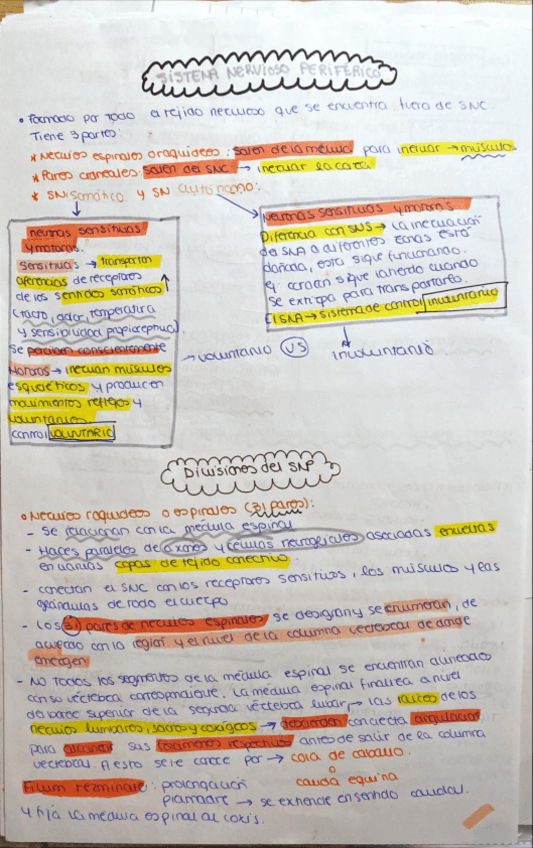 SISTEMA NERVIOSO PERIFÉRICO
• Formado por todo el tejido nervioso que se encuentra fuera de SNC.
Tiene 3 partes:
* Nervios espinales o raquídeos: salen de la médula para inervar → músculos
* Pares craneales: salen del SNC → inervar la cara
* SN somático y SN autónomo:
neuronas sensitivas
y motoras.
Sensitivas → transportan
aferencias de receptores
de los sentidos somáticos
(tacto, dolor, temperatura
y sensibilidad propioceptiva)
Se perciben conscientemente
Motoras → inervan músculos
esqueléticos y producen
movimientos reflejos y
voluntarios
control VOLUNTARIO
Neuronas sensitivas y motoras
Diferencia con SNS → la inervación
del SNA a diferentes zonas está
dañada, esta sigue funcionando.
ej: corazón sigue latiendo cuando
se extirpa para transplantarlo.
El SNA → sistema de control involuntario
→ voluntario VS involuntario
Divisiones del SNP
• Nervios raquídeos o espinales (31 pares):
- Se relacionan con la médula espinal
- Haces paralelos de axones y células neurogliales asociadas envueltas
en varias capas de tejido conectivo
- conectan el SNC con los receptores sensitivos, los músculos y las
glándulas de todo el cuerpo
- Los 31 pares de nervios espinales se designan y se enumeran, de
acuerdo con la región y el nivel de la columna vertebral de donde
emergen
- No todos los segmentos de la médula espinal se encuentran alineados
con su vértebra correspondiente. La médula espinal finaliza a nivel
del borde superior de la segunda vértebra lumbar, → las raíces de los
nervios lumbares, sacros y coxígeos → descienden con cierta angulación
para alcanzar sus forámenes respectivos antes de salir de la columna
vertebral. A esto se le conoce por → cola de caballo.
o
cauda equina
Filum terminale: prolongación
piamadre → se extiende en sentido caudal.
y fija la médula espinal al coxis.